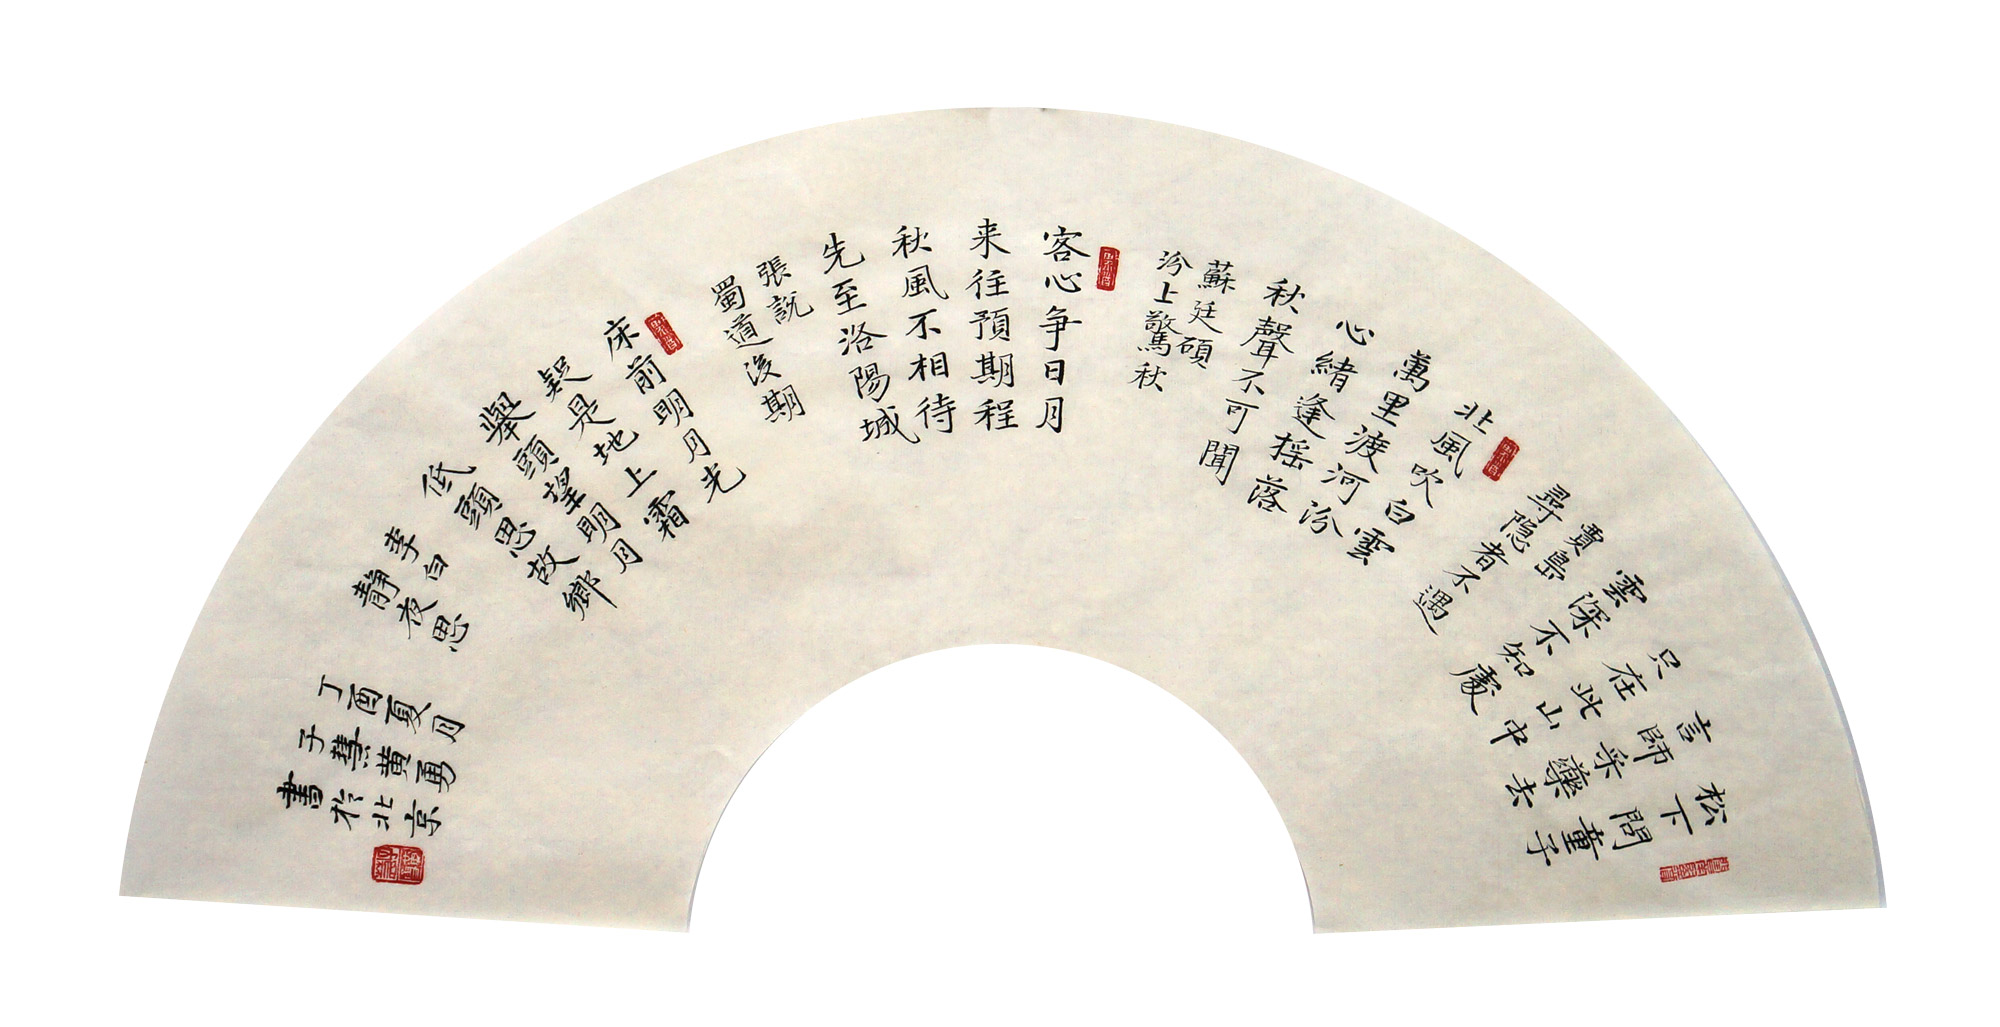 松下問童子
言師采藥去
只在此山中
雲深不知處
賈島
尋隐者不遇
北風吹白雲
萬里渡河汾
心緒逢摇落
秋聲不可聞
蘇廷碩
汾上驚秋
客心争日月
来往預期程
秋風不相待
先至洛陽城
張説
蜀道後期
床前明月光
疑是地上霜
舉頭望明月
低頭思故鄉
李白
靜夜思
丁酉夏月
子慧黄勇
書於北京